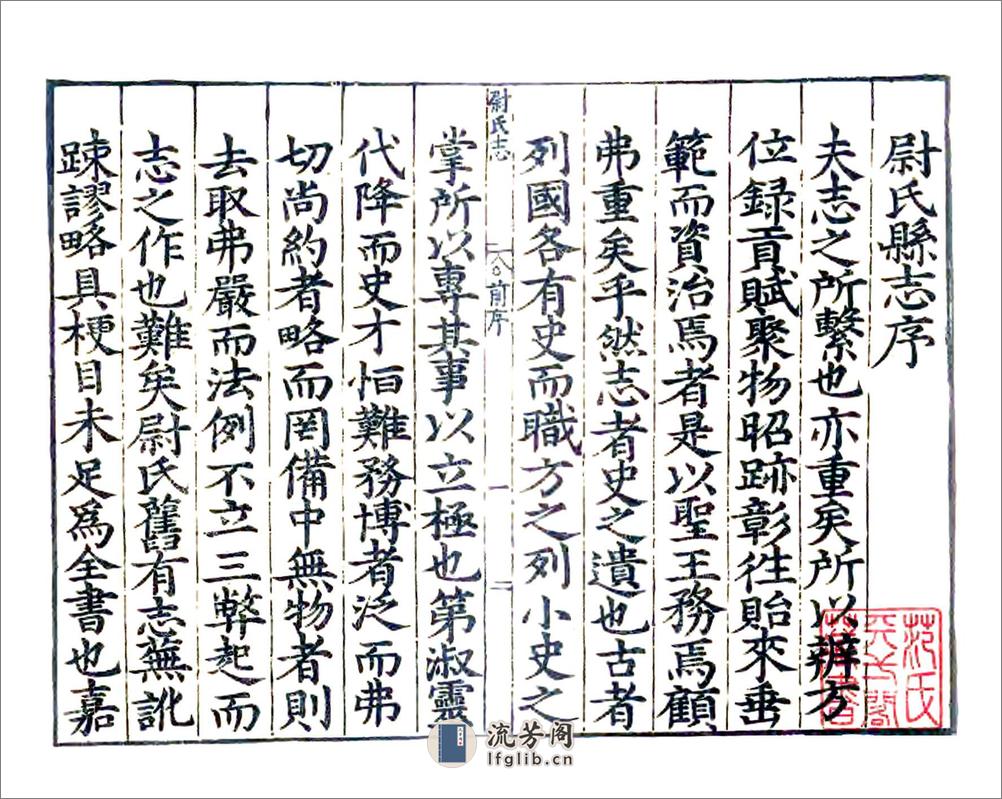 尉氏縣志序
夫志之所繫也亦重矣所以辨方
位録貢賦聚物昭跡彰往貽來垂
範而資治焉者是以聖王務焉顧
弗重矣乎然志者史之遺也古者
列國各有史而職方之列小史之
尉氏志
前序
一
二
掌所以專其事以立極也第淑靈
代降而史才恒難務博者泛而弗
切尚約者略而罔備中無物者則
去取弗嚴而法例不立三弊起而
志之作也難矣尉氏舊有志蕪訛
踈謬略具梗目未足爲全書也嘉
范氏
天一閣
藏書
流芳阁
lfglib.cn